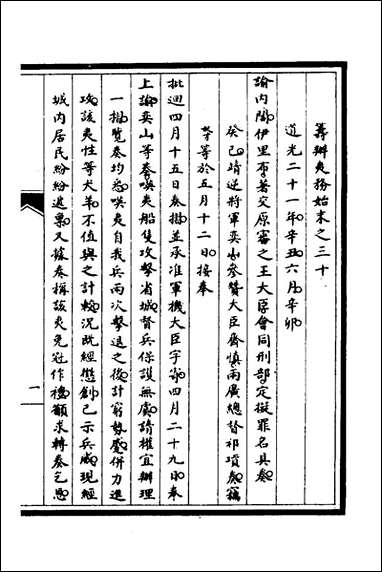 籌辦夷務始末之三十
道光二十一年辛丑六月辛卯
諭內閣伊里布著交原審之王大臣會同刑部定擬罪名具奏
癸巳靖逆將軍奕山參贊大臣齊慎兩廣總督祁𡎴奏竊
奴等於五月十二日接奉
批迴四月十五日奏摺並承准軍機大臣字寄四月二十九日奉
上諭奕山等奏嘆夷船隻攻擊省城督兵保護無虞請權宜辦理
一摺覽奏均悉嘆夷自我兵兩次擊退之後計窮勢蹙併力進
攻該夷性等犬羊不值與之計較況既經懲創已示兵威現經
城内居民紛紛遞稟又據奏稱該夷免冠作禮籲求轉奏乞恩
一